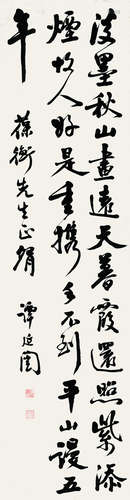 淡墨秋山畫遠天暮霞還照紫添
煙故人好是重攜手不到平山謾五
年
葆衡先生正
譚延闓